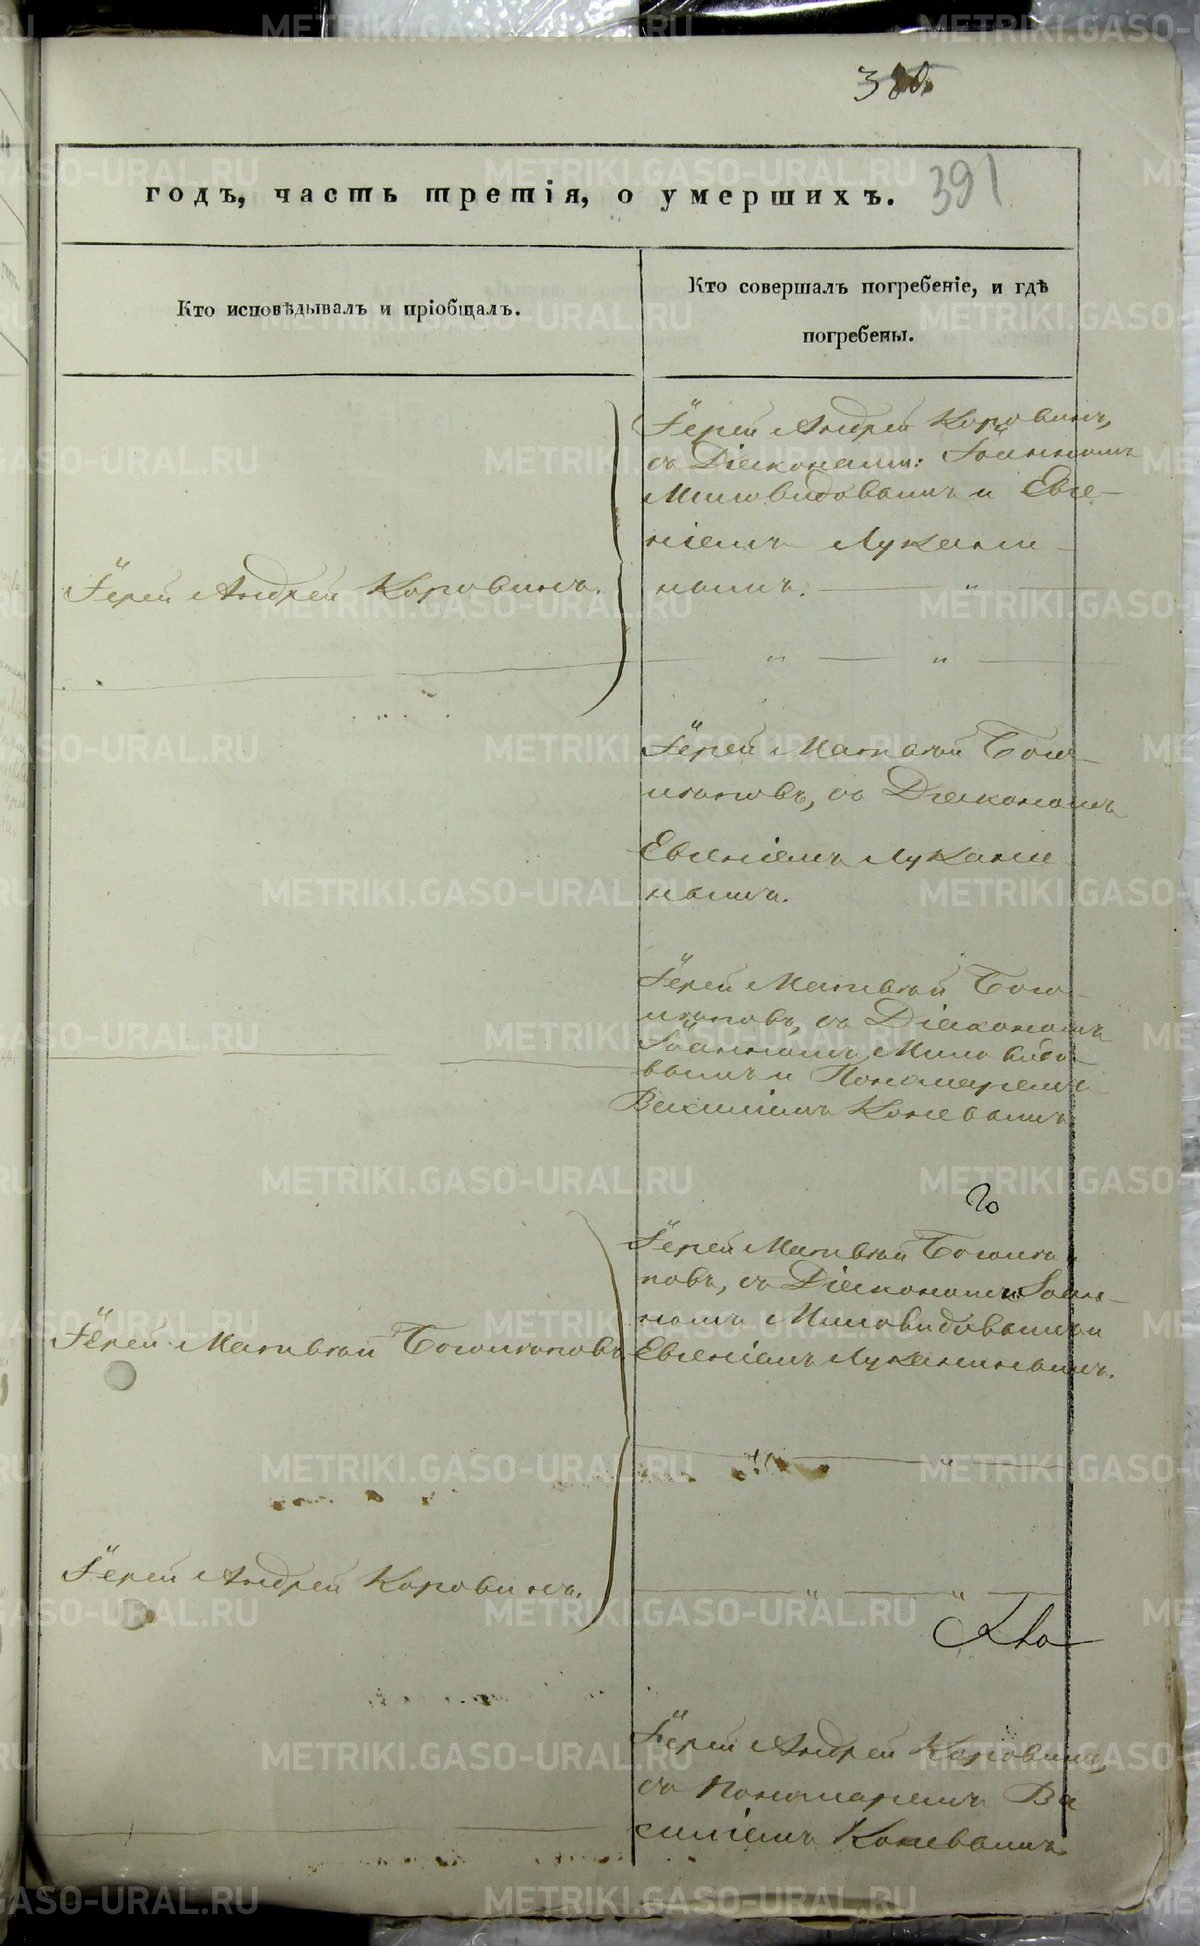 391
годъ, часть третія, о умершихъ.
Кто исповѣдывалъ и пріобщалъ.
Кто совершалъ погребеніе, и гдѣ
погребены.
Іерей Андрей Коровинъ.
Іерей Андрей Коровинъ,
съ Діаконами: Іоанномъ
Миловидовымъ и Евге-
ніемъ Лукани-
нымъ.
Іерей Матвѣй
съ Діакономъ
Евгеніемъ Лукани
нымъ.
Іерей Матвѣй
съ Діакономъ
Іоанномъ Миловидо-
вымъ и Пономаремъ
Василіемъ Коневымъ
Іерей Матвѣй
Іерей Матвѣй
съ Діакономъ Іоан-
номъ Миловидовымъ и
Евгеніемъ Луканинымъ.
Іерей Андрей Коровинъ.
Іерей Андрей Коровинъ,
съ Пономаремъ Ва
силіемъ Коневымъ
METRIKI.GASO-URAL.RU